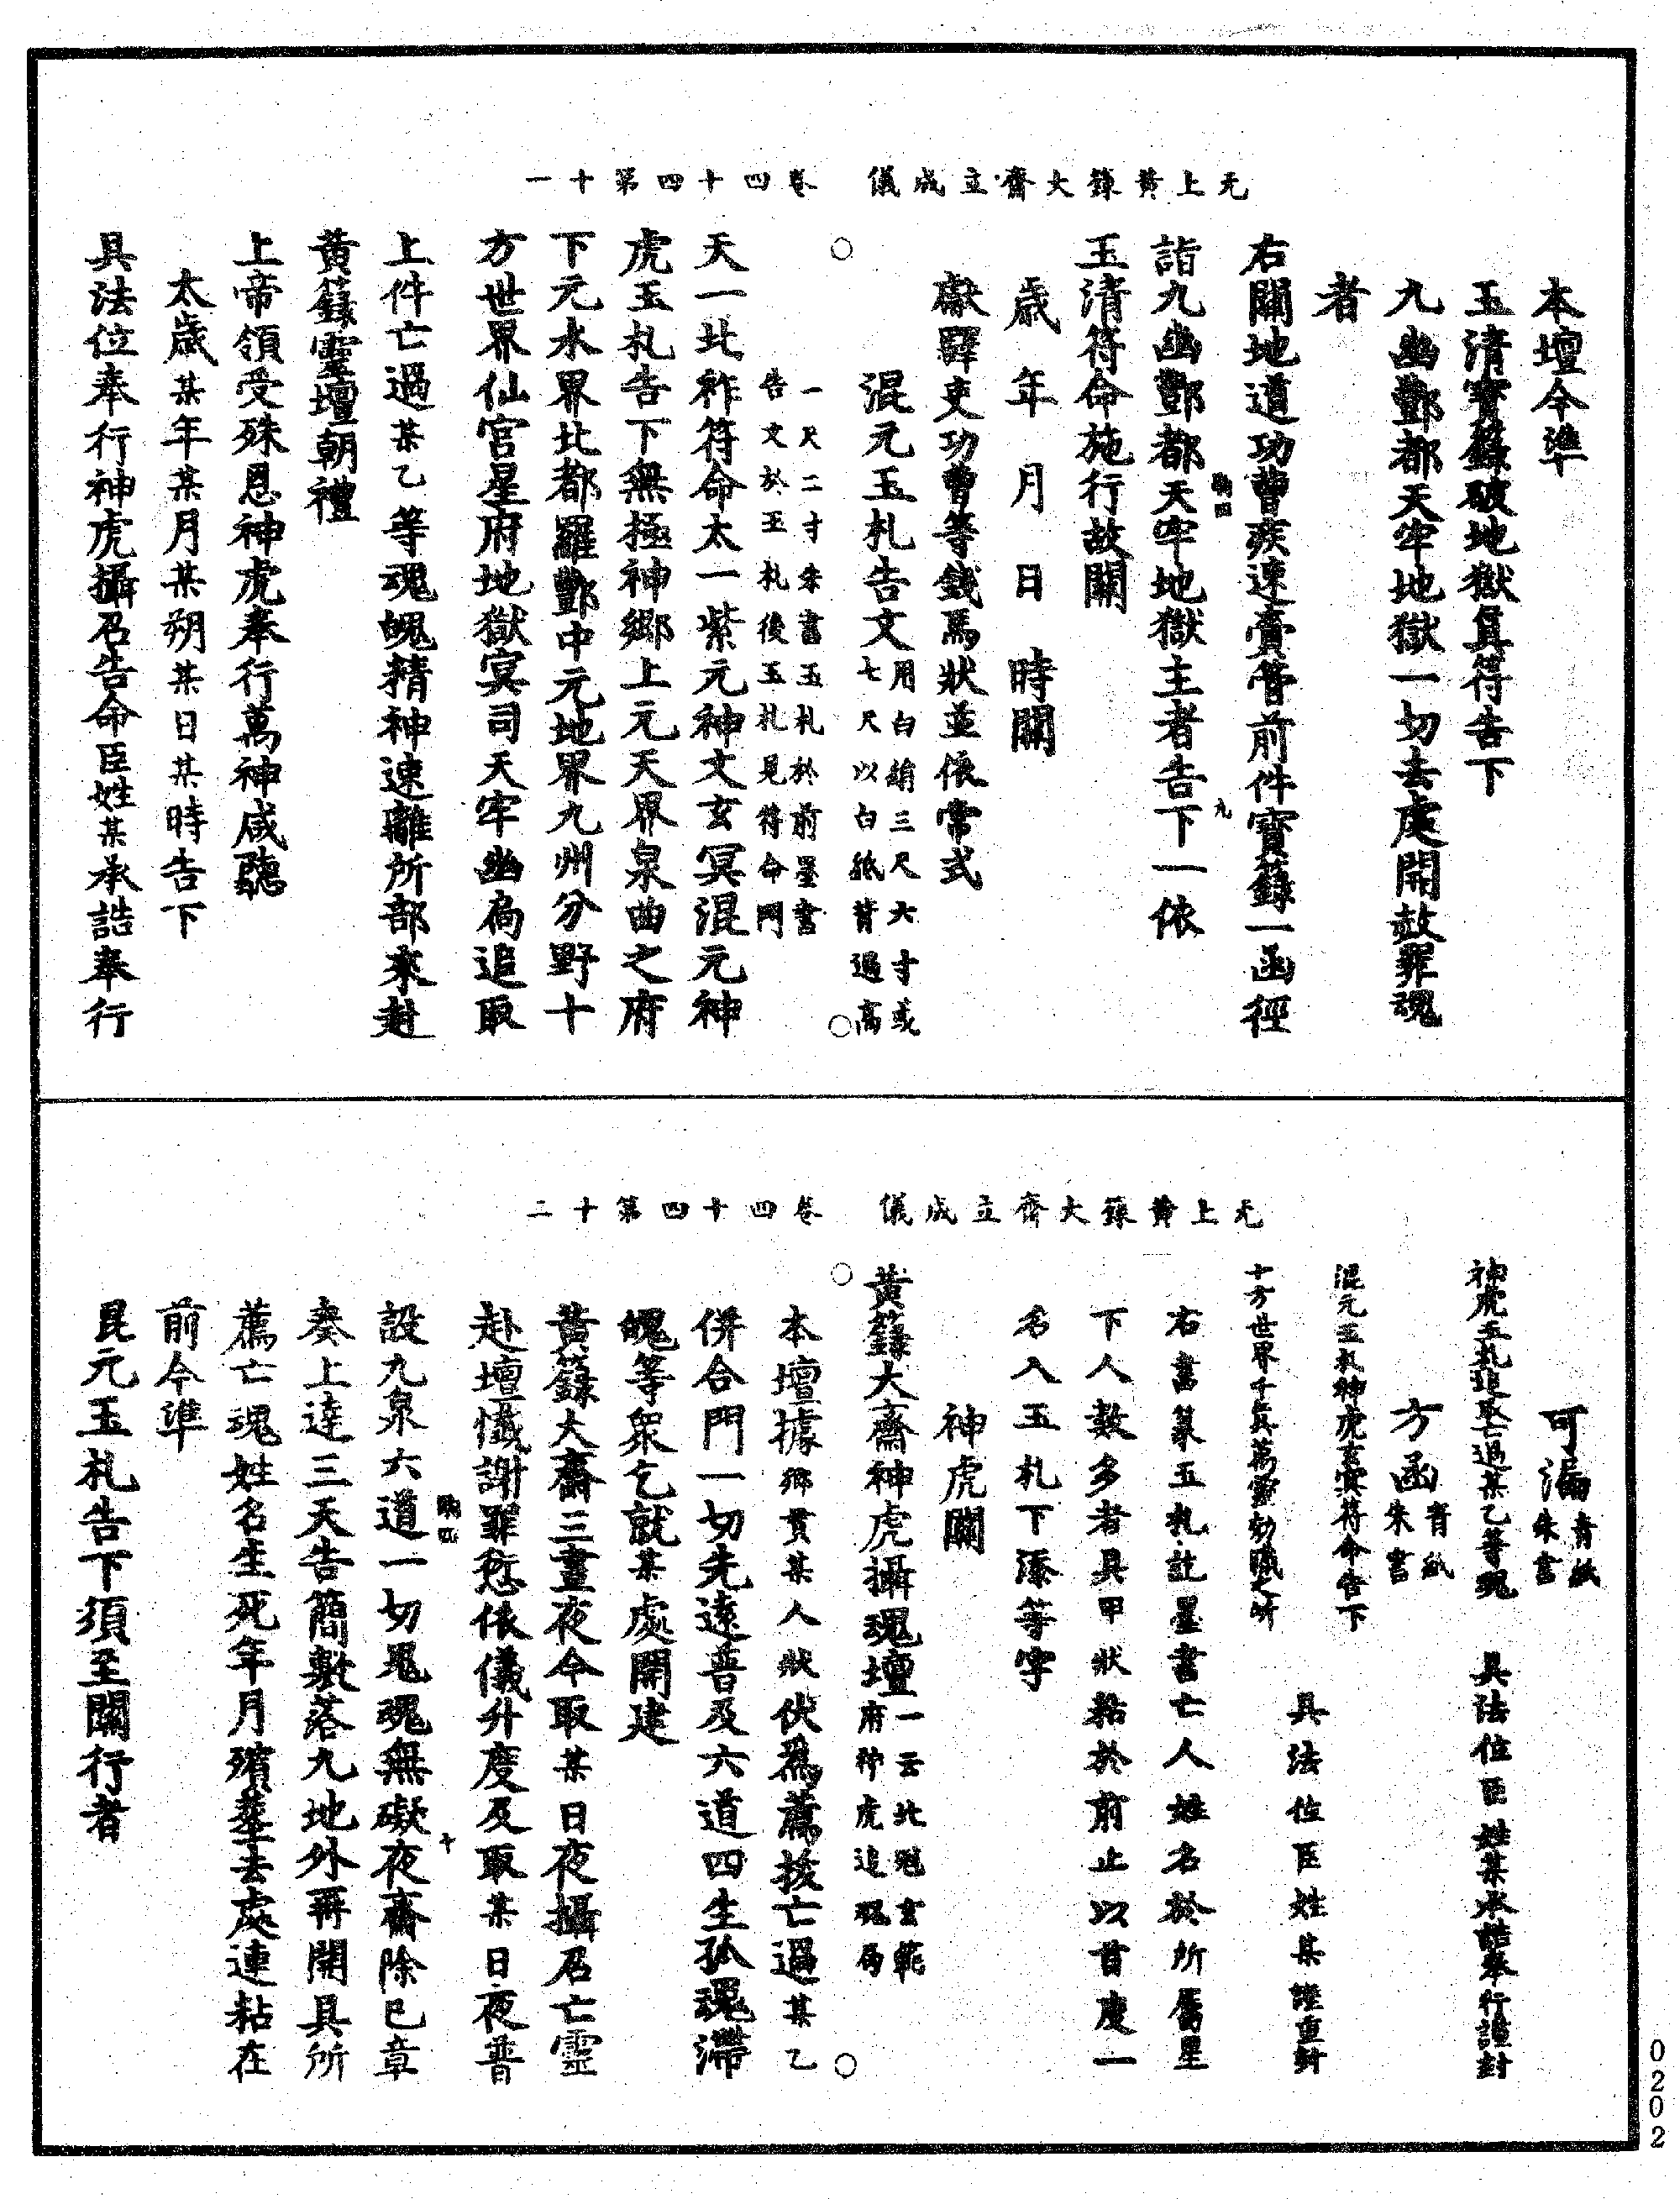 无上黃籙大齋立成儀　卷四十四第十一
本壇今準
玉清寶籙破地獄真符告下
九幽酆都天牢地獄一切去處開赦罪魂
者
右關地道功曹疾速賫管前件寶籙一函徑
詣九幽酆都天牢地獄主者告下一依
九
玉清符命施行故關
歲　年　月　日　時關
獻驛吏功曹等錢馬狀並依常式
混元玉札告文用白絹三尺六寸或七尺以白紙背過高
一尺二寸朱書玉札於前墨書告文於玉札後玉札見符命門
天一北祚符命太一紫元神文玄冥混元神
虎玉札告下無極神鄉上元天界泉曲之府
下元水界北都羅酆中元地界九州分野十
方世界仙官星府地獄冥司天牢幽扃追取
上件亡過某乙等魂魄精神速離所部來赴
黃籙靈壇朝禮
上帝領受殊恩神虎奉行萬神咸聽
太歲某年某月某朔某日某時告下
具法位奉行神虎攝召告命臣姓某承誥奉行
无上黃籙大齋立成儀　卷四十四第十二
可漏青紙朱書
神虎玉札追取亡過某乙等魂　具法位臣姓某承誥奉行謹封
方函青紙朱書
混元玉札神虎玄冥符命告下
十方世界千真萬靈勅職之所　具法位臣姓某謹重封
右書篆玉札註墨書亡人姓名於所屬星
下人數多者具甲狀粘於前止以首度一
名入玉札下添等字
神虎關
黃籙大齋神虎攝魂壇一云北魁玄範府神虎追魂局
本壇據鄉貫某人狀伏爲薦拔亡過某乙
併合門一切先遠普及六道四生孤魂滯
魄等衆乞就某處開建
黃籙大齋三晝夜今取某日夜攝召亡靈
赴壇懺謝罪愆依儀升度及取某日夜普
十
設九泉六道一切鬼魂無礙夜齋除已章
奏上達三天告簡敷落九地外再開具所
薦亡魂姓名生死年月殯葬去處連粘在
前今準
混元玉札告下須至關行者
0202